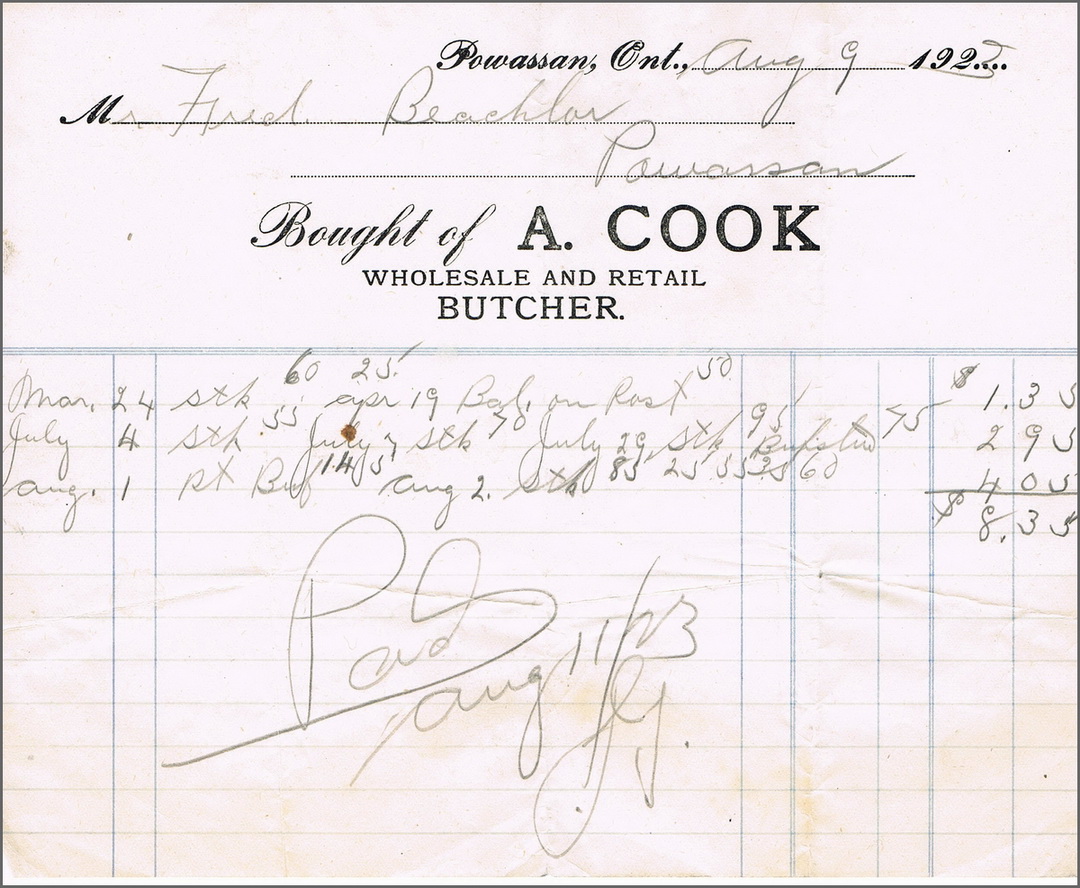 Powassan, Ont., Aug 9 1923
Mr Fred Beachlor
Powassan
Bought of A. COOK
WHOLESALE AND RETAIL
BUTCHER.
Mar. 24 stk 60 25 apr 19 Bal. on Rost 50 $ 1.35
July 4 stk 55 July 7 stk 70 July 29, stk 95 75 2 95
aug. 1 rt Buf 1.45 aug 2. stk 85 25 55 35 60 4 05
$ 8.35
Paid
aug 11/23